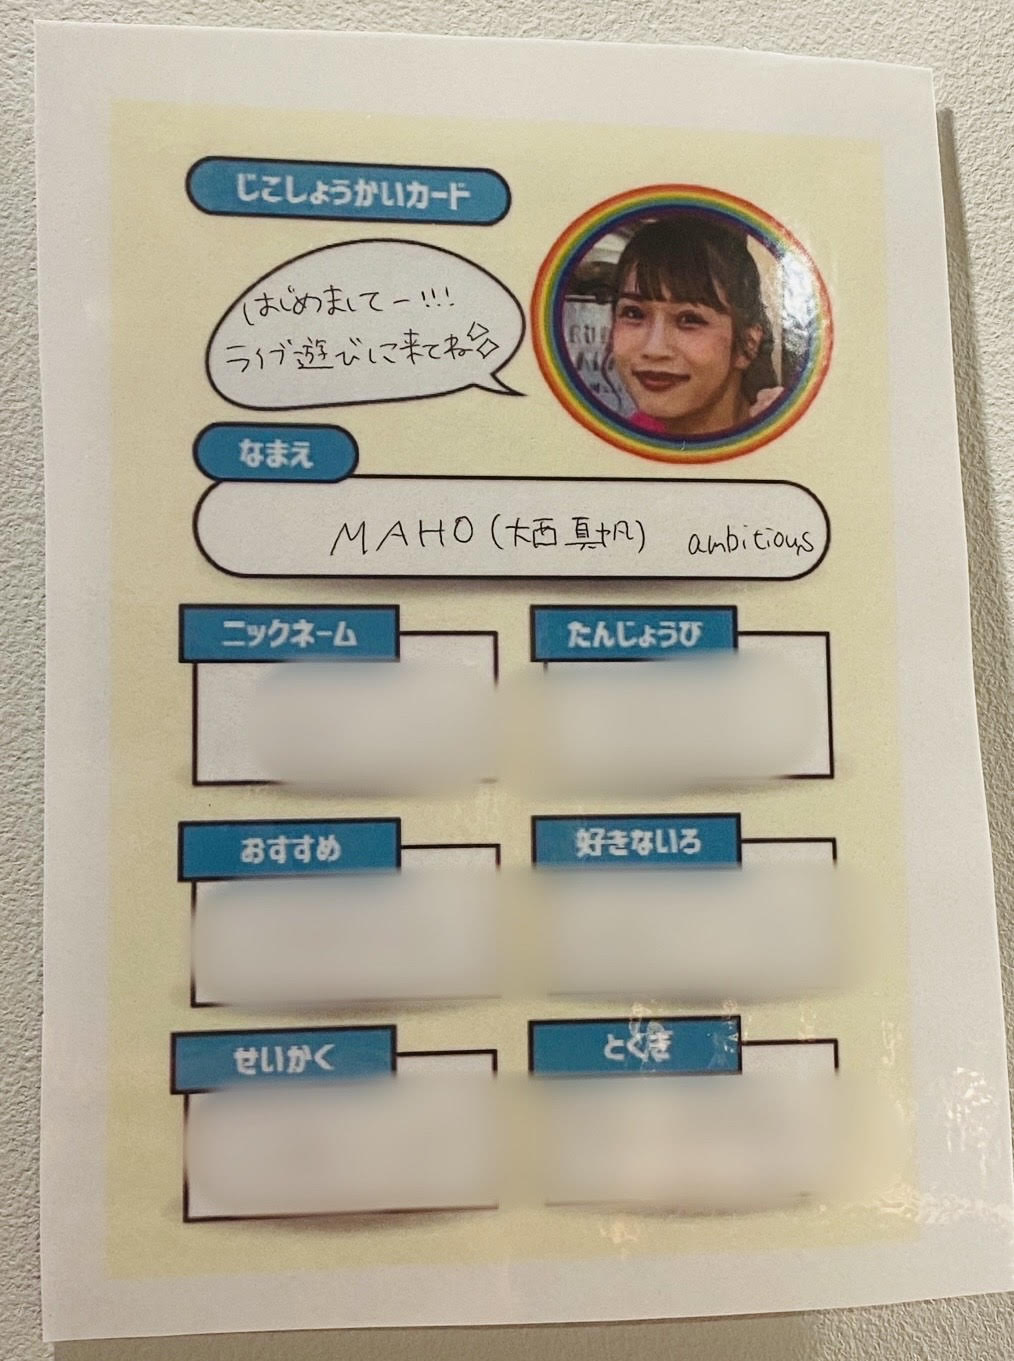 じこしょうかいカード
はじめましてー!!!
ライブ遊びに来てね
なまえ
MAHO(大西真帆) ambitious
ニックネーム
たんじょうび
おすすめ
好きないろ
せいかく
とくぎ